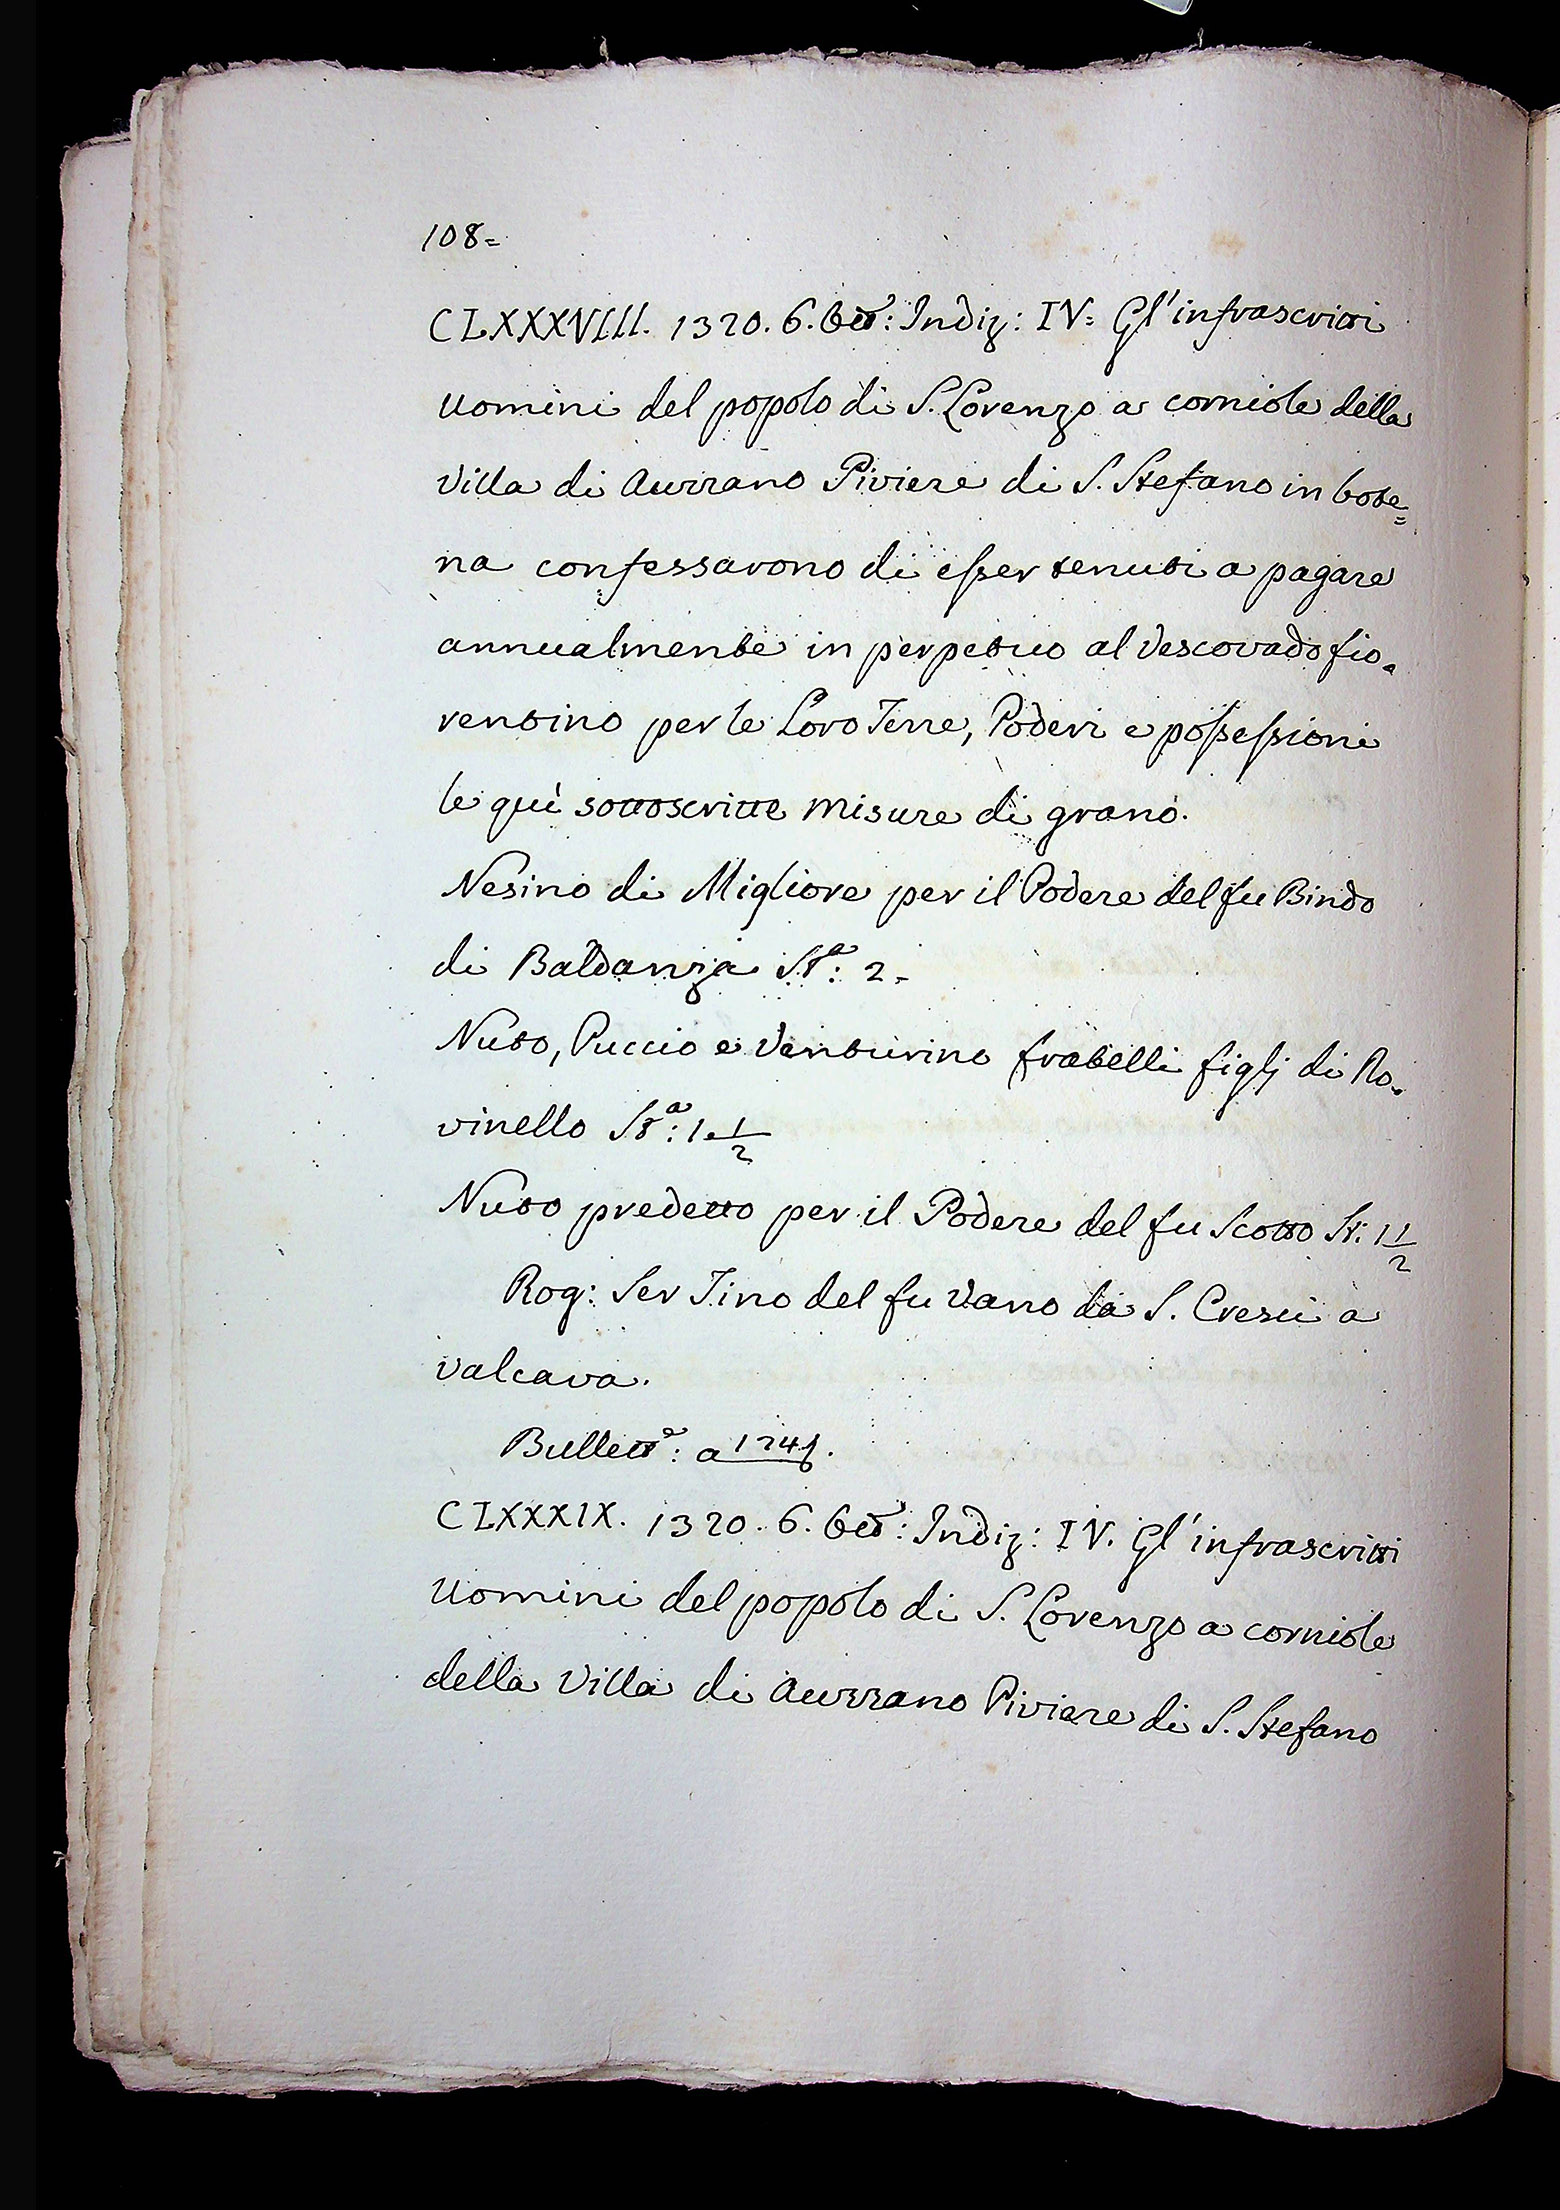 108=
CLXXXVIII. 1320. 6. Gbre: Indiz: IV: Gl'infrascritti
Uomini del popolo di S. Lorenzo a corniole della
Villa di Aurrano Piviere di S. Stefano in bote=
na confessarono di esser tenuti a pagare
annualmente in perpetuo al Vescovado fio-
rentino per le Loro Terre, Poderi e possessioni
le quì sottoscritte misure di grano.
Nesino di Migliore per il Podere del fu Bindo
di Baldanza Stª: 2.
Nuto, Puccio e Venturino fratelli figlj di Ro-
vinello Stª: 1. 1/2
Nuto predetto per il Podere del fu Scotto St: 1 1/2
Rog: Ser Tino del fu Vano da S. Cresci a
valcava.
Bullettº: a
CLXXXIX. 1320. 6. Gbre: Indiz: IV. Gl'infrascritti
Uomini del popolo di S. Lorenzo a corniole
della Villa di Aurrano Piviere di S. Stefano